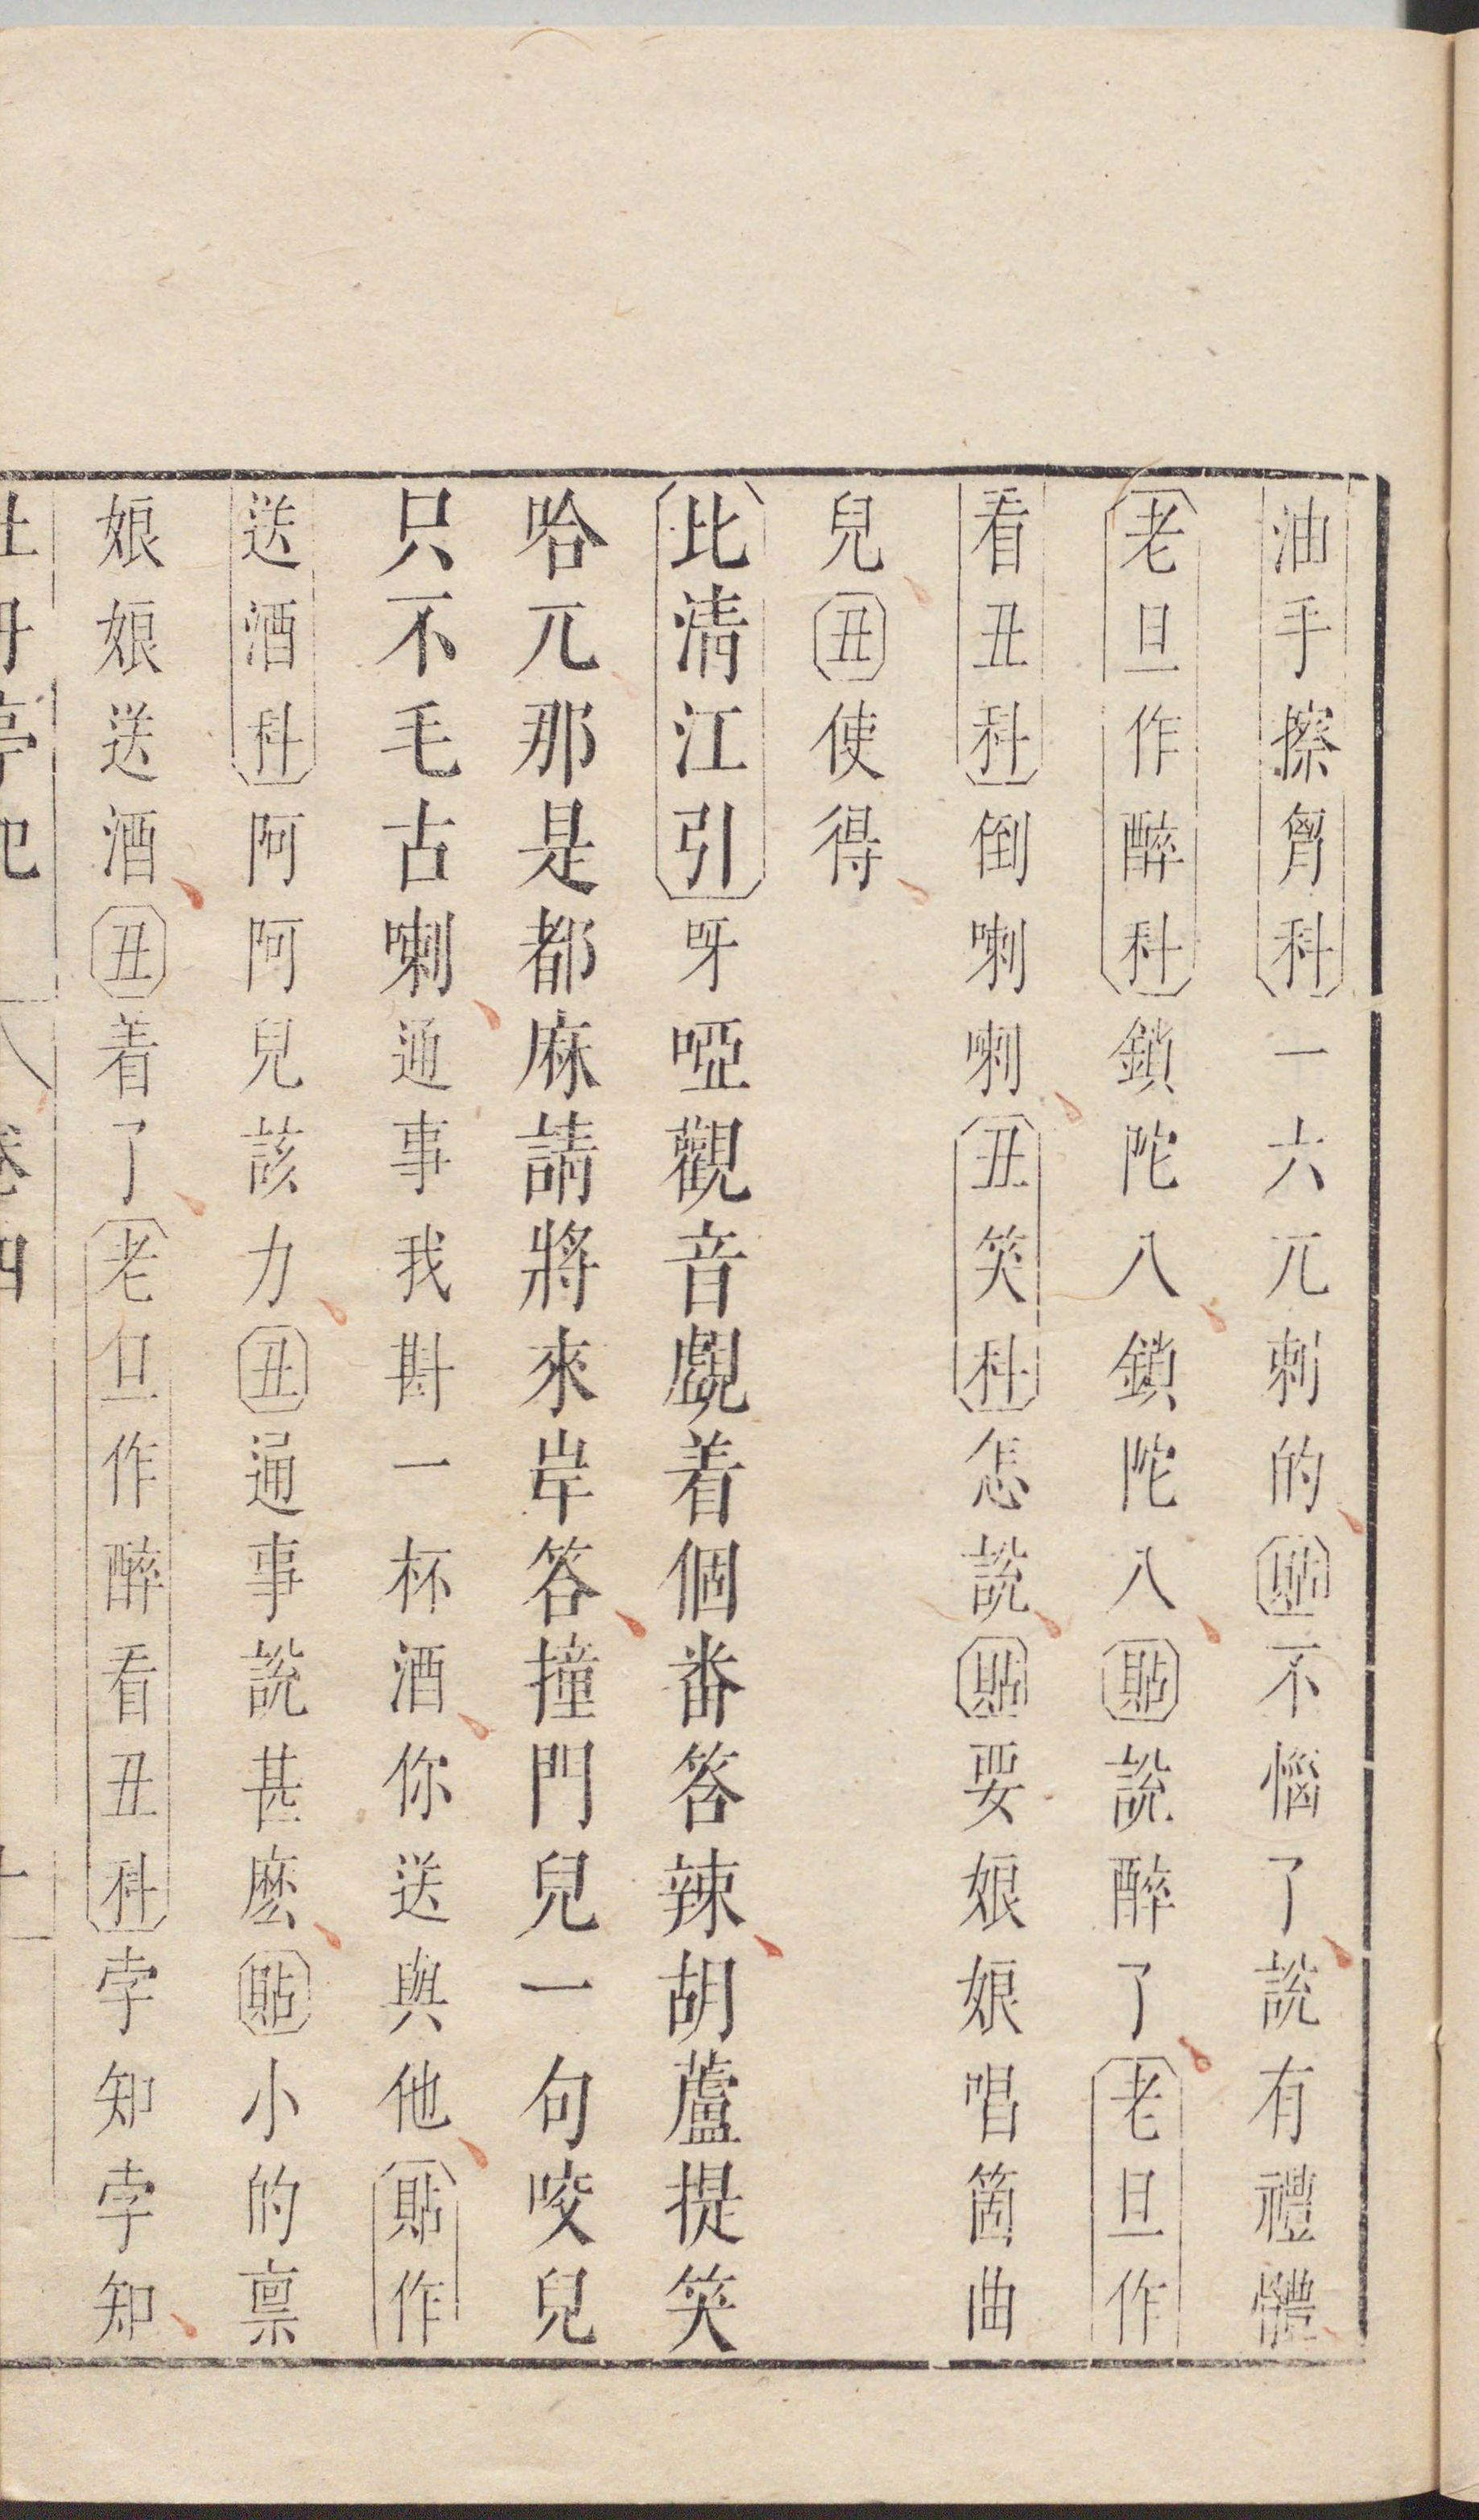 油手擦胷科一六兀剌的貼不惱了說有禮體
老旦作醉科鎖陀八鎖陀八貼說醉了老旦作
看丑科倒喇喇丑笑科怎說貼要娘娘唱箇曲
兒丑使得
北清江引呀啞觀音覷着個番答辣胡蘆提笑
哈兀那是都麻請將來岸答撞門兒一句咬兒
只不毛古喇通事我斟一杯酒你送與他貼作
送酒科阿阿兒該力丑通事說甚麽貼小的禀
娘娘送酒丑着了老旦作醉看丑科孛知孛知